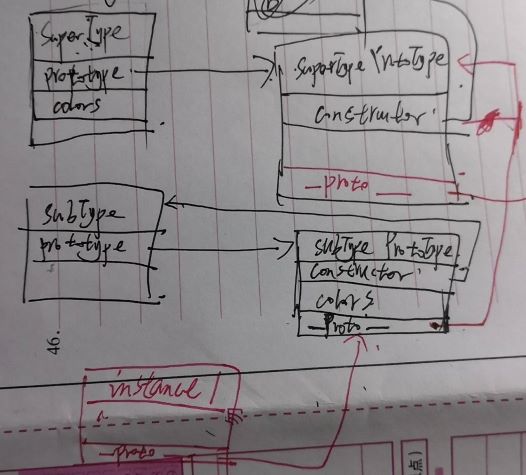 SuperType
prototype
colors
SuperType Prototype
constructor
__proto__
SubType
prototype
SubType Prototype
constructor
colors
__proto__
46.
instance 1
__proto__
点)